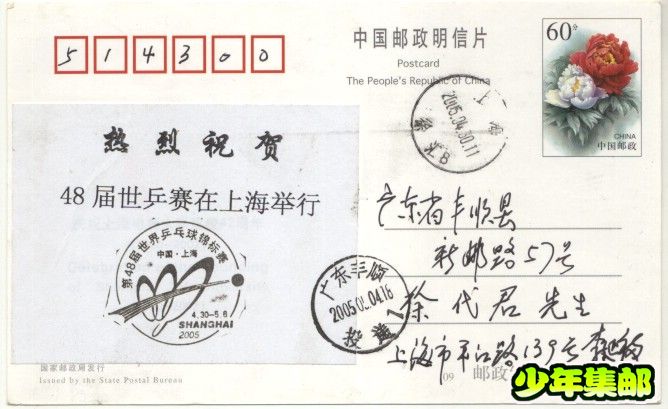 514300
中国邮政明信片
Postcard
The People's Republic of China
60分
CHINA
中国邮政
上海
2005.04.30.11
热烈祝贺
48届世乒赛在上海举行
第48届世界乒乓球锦标赛
中国·上海
4.30-5.6
SHANGHAI
2005
广东丰顺
2005.05.04.16
投递
广东省丰顺县
新邮路57号
徐代君先生
上海市平江路139号
国家邮政局发行
Issued by the State Postal Bureau
09
邮政
少年集邮